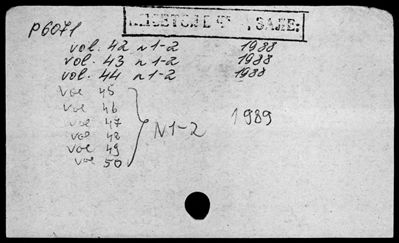 P6071
ЗАЛЕ:
vol. 42 n 1-2 1988
vol. 43 n 1-2 1988
vol. 44 n 1-2 1988
vol 45
vol 46
vol 47
vol 48
vol 49
vol 50
N1-2 1989